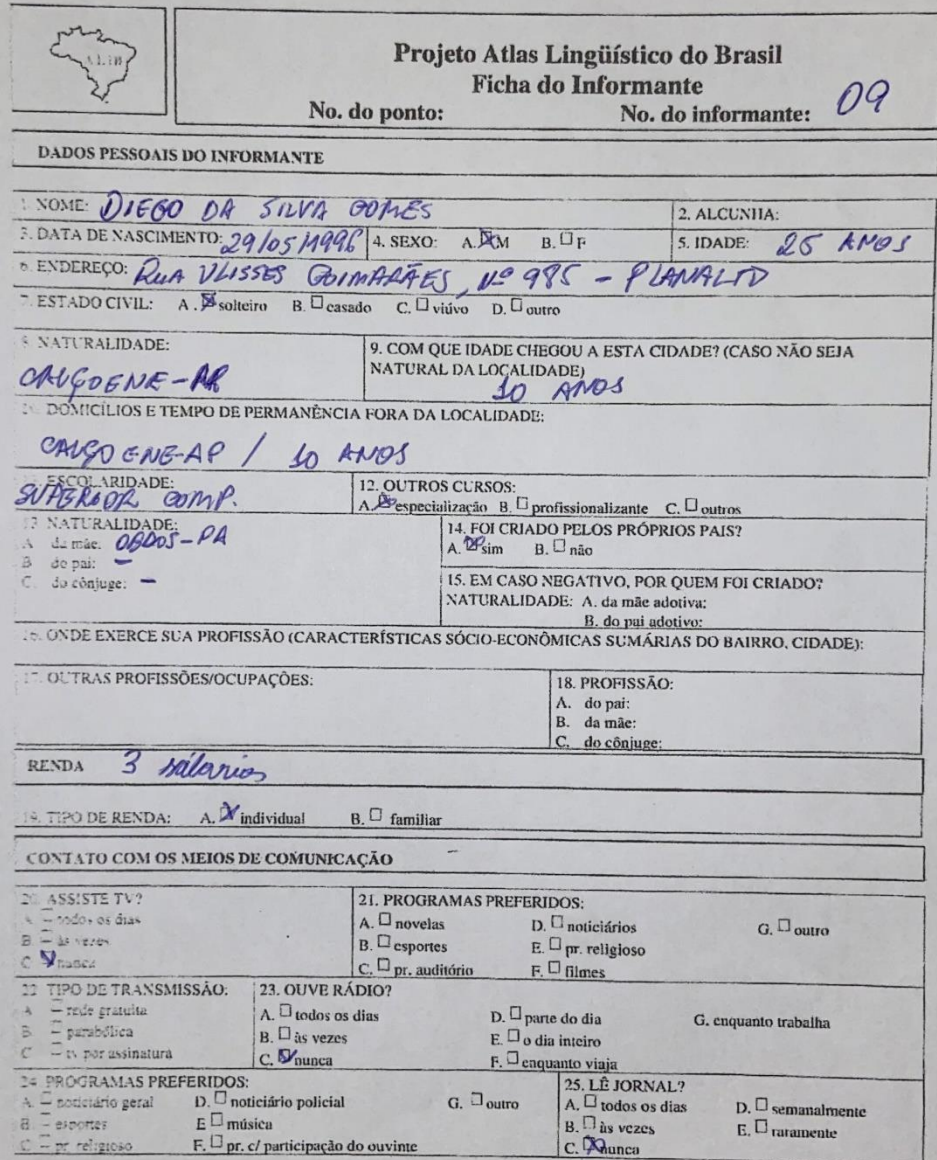 ALiB
Projeto Atlas Lingüístico do Brasil
Ficha do Informante
No. do ponto: No. do informante: 09
DADOS PESSOAIS DO INFORMANTE
1. NOME: DIEGO DA SILVA GOMES 2. ALCUNHA:
3. DATA DE NASCIMENTO: 29/05/1996 4. SEXO: A. ☒ M B. ☐ F 5. IDADE: 25 ANOS
6. ENDEREÇO: RUA ULISSES GUIMARÃES, Nº 985 - PLANALTO
7. ESTADO CIVIL: A. ☒ solteiro B. ☐ casado C. ☐ viúvo D. ☐ outro
8. NATURALIDADE:
CALÇOENE-AP
9. COM QUE IDADE CHEGOU A ESTA CIDADE? (CASO NÃO SEJA
NATURAL DA LOCALIDADE)
10 ANOS
10. DOMICÍLIOS E TEMPO DE PERMANÊNCIA FORA DA LOCALIDADE:
CALÇOENE-AP / 10 ANOS
11. ESCOLARIDADE:
SUPERIOR COMP.
12. OUTROS CURSOS:
A. ☒ especialização B. ☐ profissionalizante C. ☐ outros
13. NATURALIDADE:
A. da mãe: OBDOS-PA
B. do pai: –
C. do cônjuge: –
14. FOI CRIADO PELOS PRÓPRIOS PAIS?
A. ☒ sim B. ☐ não
15. EM CASO NEGATIVO, POR QUEM FOI CRIADO?
NATURALIDADE: A. da mãe adotiva:
B. do pai adotivo:
16. ONDE EXERCE SUA PROFISSÃO (CARACTERÍSTICAS SÓCIO-ECONÔMICAS SUMÁRIAS DO BAIRRO, CIDADE):
17. OUTRAS PROFISSÕES/OCUPAÇÕES:
18. PROFISSÃO:
A. do pai:
B. da mãe:
C. do cônjuge:
RENDA 3 sálarios
19. TIPO DE RENDA: A. ☒ individual B. ☐ familiar
CONTATO COM OS MEIOS DE COMUNICAÇÃO
20. ASSISTE TV?
A. ☐ todos os dias
B. ☐ às vezes
C. ☒ nunca
21. PROGRAMAS PREFERIDOS:
A. ☐ novelas D. ☐ noticiários G. ☐ outro
B. ☐ esportes E. ☐ pr. religioso
C. ☐ pr. auditório F. ☐ filmes
22. TIPO DE TRANSMISSÃO:
A. ☐ rede gratuita
B. ☐ parabólica
C. ☐ tv por assinatura
23. OUVE RÁDIO?
A. ☐ todos os dias D. ☐ parte do dia G. enquanto trabalha
B. ☐ às vezes E. ☐ o dia inteiro
C. ☒ nunca F. ☐ enquanto viaja
24. PROGRAMAS PREFERIDOS:
A. ☐ noticiário geral D. ☐ noticiário policial G. ☐ outro
B. ☐ esportes E ☐ música
C. ☐ pr. religioso F. ☐ pr. c/ participação do ouvinte
25. LÊ JORNAL?
A. ☐ todos os dias D. ☐ semanalmente
B. ☐ às vezes E. ☐ raramente
C. ☒ nunca